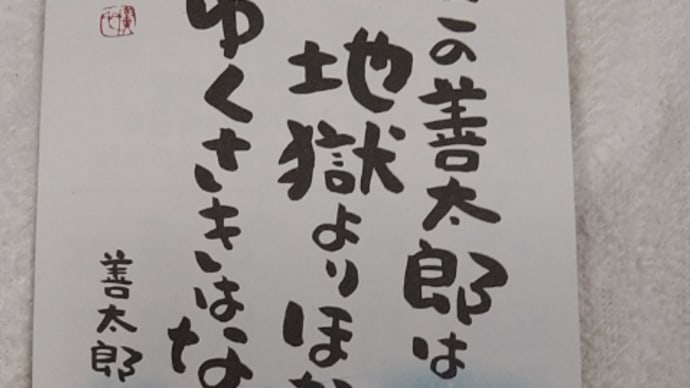 この善太郎は
地獄よりほか
ゆくさきはな
善太郎